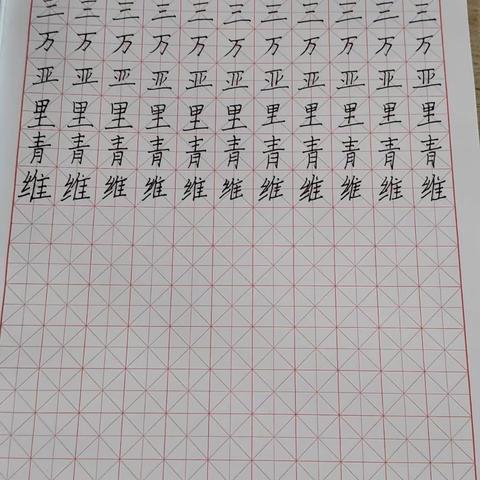 三三三三三三三三三三三
万万万万万万万万万万万
亚亚亚亚亚亚亚亚亚亚亚
里里里里里里里里里里里
青青青青青青青青青青青
维维维维维维维维维维维